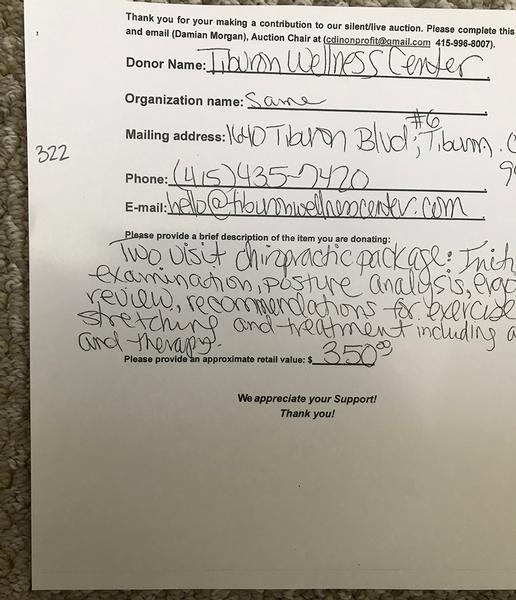 Thank you for your making a contribution to our silent/live auction. Please complete this
and email (Damian Morgan), Auction Chair at (cdinonprofit@gmail.com 415-996-8007).
Donor Name: Tiburon Wellness Center
Organization name: Same
#6
Mailing address: 1640 Tiburon Blvd; Tiburon, C
322
9
Phone: (415)435-7420
E-mail: hello@tiburonwellnesscenter.com
Please provide a brief description of the item you are donating:
Two visit chiropractic package: Initi
examination, posture analysis, ergo
review, recommendations for exercise
stretching and treatment including a
and therapy.
Please provide an approximate retail value: $ 350.00
We appreciate your Support!
Thank you!